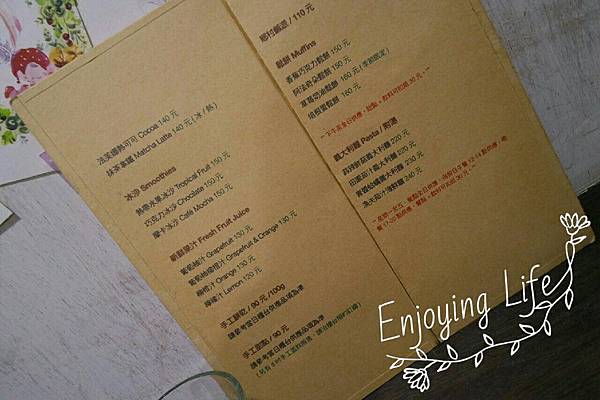 法芙娜熱可可 Cocoa 140 元
抹茶拿鐵 Matcha Latte 140 元 ( 冰 / 熱 )
冰沙 Smoothies
熱帶水果冰沙 Tropical Fruit 150 元
巧克力冰沙 Chocolate 150 元
摩卡冰沙 Café Mocha 150 元
新鮮果汁 Fresh Fruit Juice
葡萄柚汁 Grapefruit 130 元
葡萄柚柳橙汁 Grapefruit & Orange 130 元
柳橙汁 Orange 130 元
檸檬汁 Lemon 120 元
手工餅乾 / 90 元 /100g
請參考當日櫃台供應品項為準
手工甜點 / 90 元
請參考當日櫃台供應品項為準
/ 110 元
鬆餅 Muffins
香蕉巧克力鬆餅 150 元
150 元
草莓奶油鬆餅 160 元 ( 季節限定 )
160 元
義大利麵 Pasta / 附湯
義大利麵 220 元
義大利麵 220 元
義大利麵 230 元
海鮮麵 240 元
Enjoying Life